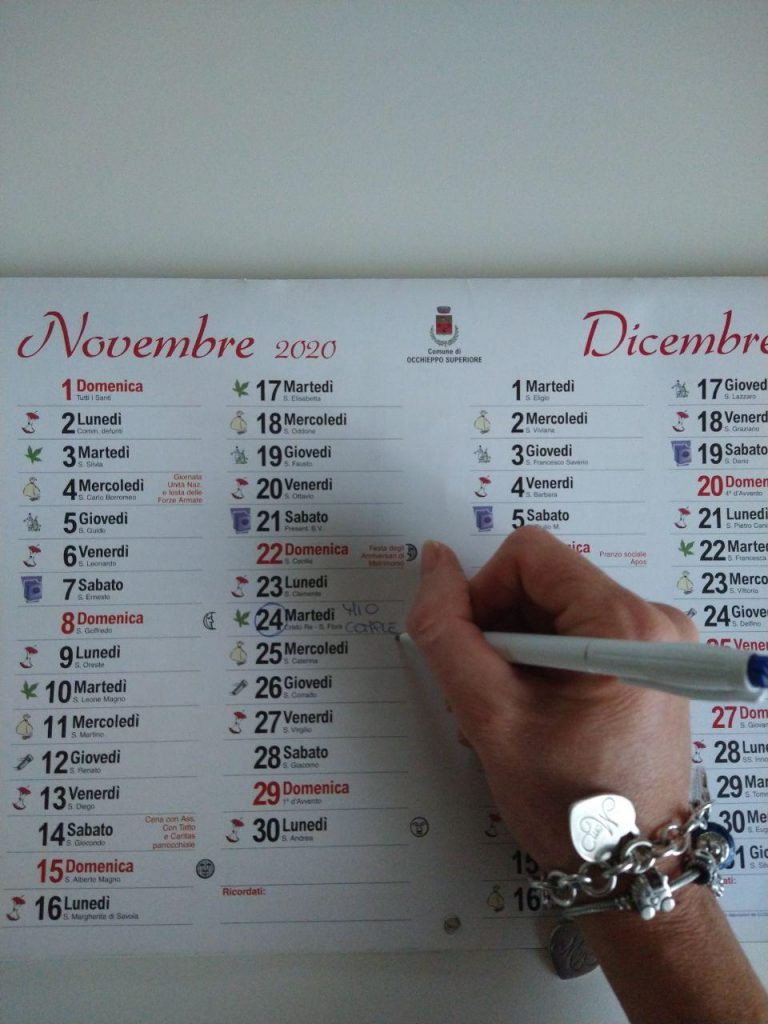 Novembre 2020
Comune di
OCCHIEPPO SUPERIORE
Dicembre
1 Domenica
Tutti i Santi
2 Lunedì
Comm. defunti
3 Martedì
S. Silvia
4 Mercoledì
S. Carlo Borromeo
Giornata
Unità Naz.
e festa delle
Forze Armate
5 Giovedì
S. Guido
6 Venerdì
S. Leonardo
7 Sabato
S. Ernesto
8 Domenica
S. Goffredo
9 Lunedì
S. Oreste
10 Martedì
S. Leone Magno
11 Mercoledì
S. Martino
12 Giovedì
S. Renato
13 Venerdì
S. Diego
14 Sabato
S. Giocondo
Cena con Ass.
Con Tatto
e Caritas
parrocchiale
15 Domenica
S. Alberto Magno
16 Lunedì
S. Margherita di Savoia
17 Martedì
S. Elisabetta
18 Mercoledì
S. Oddone
19 Giovedì
S. Fausto
20 Venerdì
S. Ottavio
21 Sabato
Present. B.V.
22 Domenica
S. Cecilia
Festa degli
Anniversari di
Matrimonio
23 Lunedì
S. Clemente
24 Martedì
Cristo Re - S. Flora
MIO
COMPLE
25 Mercoledì
S. Caterina
26 Giovedì
S. Corrado
27 Venerdì
S. Virgilio
28 Sabato
S. Giacomo
29 Domenica
1ª d'Avvento
30 Lunedì
S. Andrea
Ricordati:
1 Martedì
S. Eligio
2 Mercoledì
S. Viviana
3 Giovedì
S. Francesco Saverio
4 Venerdì
S. Barbara
5 Sabato
Pranzo sociale
Apos
15
16
17 Gioved
S. Lazzaro
18 Venerd
S. Graziano
19 Sabato
S. Dario
20 Domen
4ª d'Avvento
21 Lunedì
S. Pietro Cani
22 Marted
S. Francesca
23 Merco
S. Vittoria
24 Giove
S. Delfino
25 Vener
27 Dom
S. Giovan
28 Lune
SS. Inno
29 Mart
S. Tomm
30 Me
S. Eug
31 Gio
S. Silv